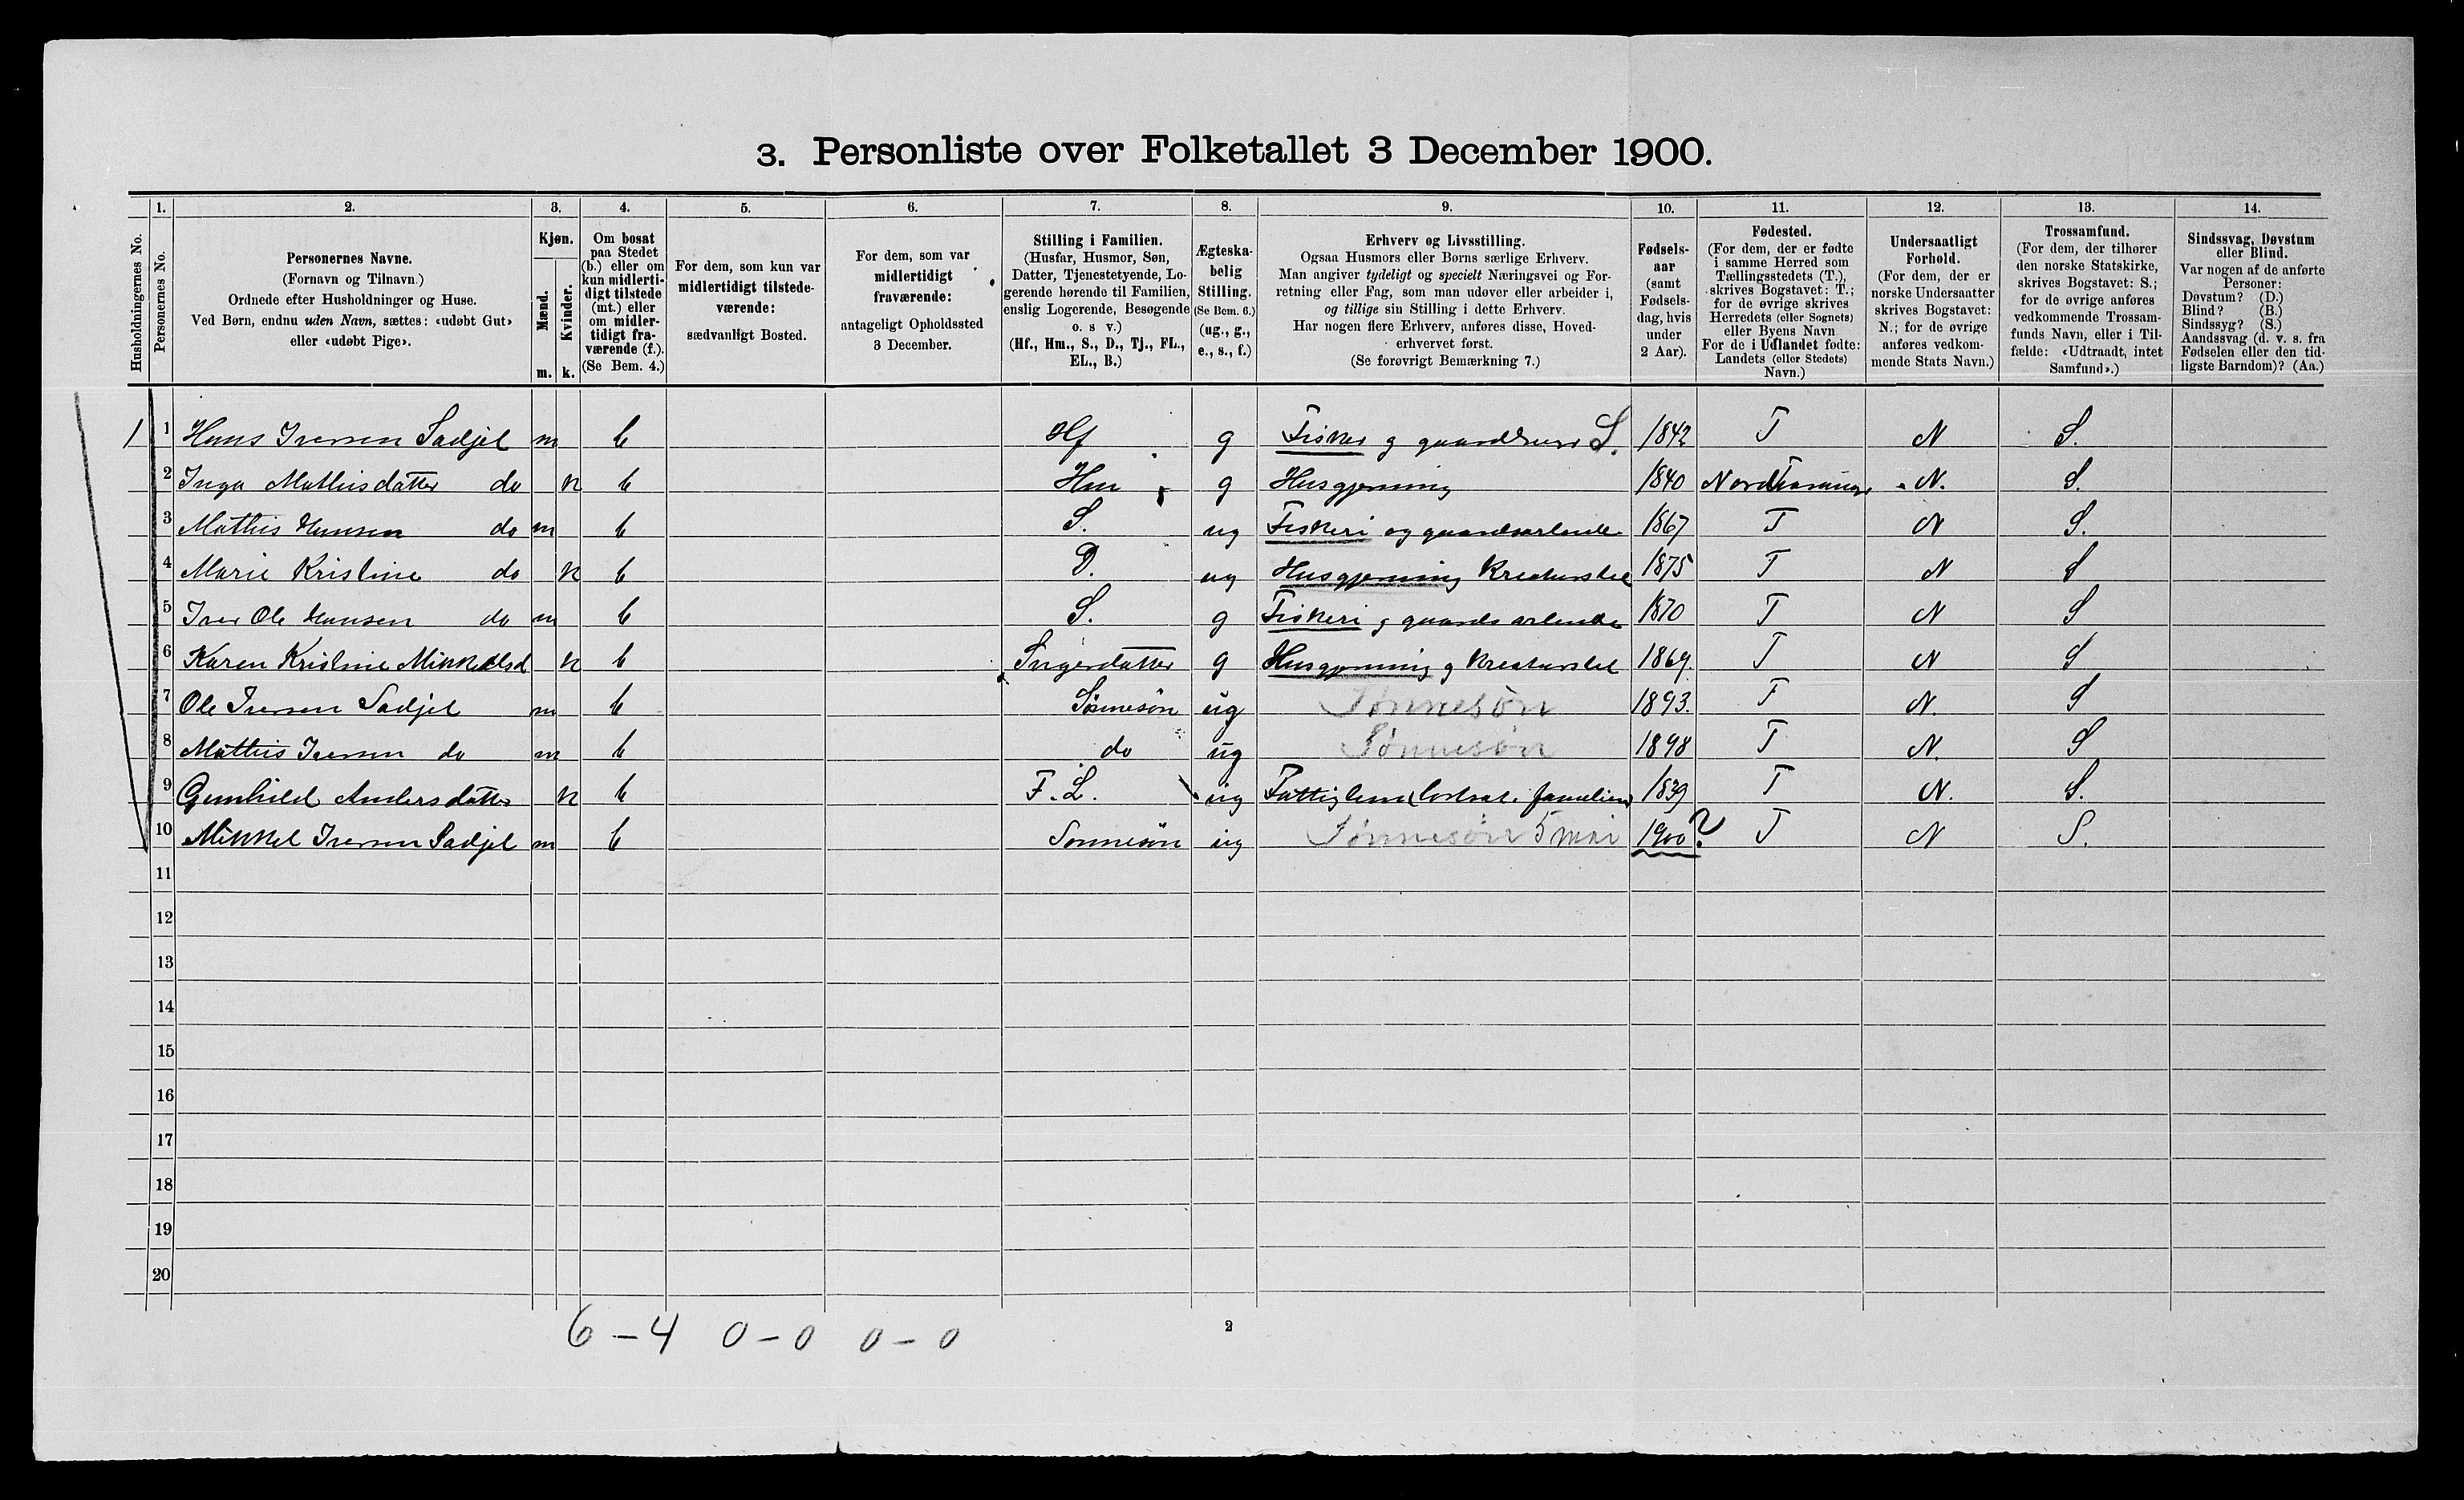 3. Personliste over Folketallet 3 December 1900.
1. 2. 3. 4. 5. 6. 7. 8. 9. 10. 11. 12. 13. 14.
Husholdningernes No.
Personernes No.
Personernes Navne.
(Fornavn og Tilnavn.)
Ordnede efter Husholdninger og Huse.
Ved Børn, endnu uden Navn, sættes: «udøbt Gut»
eller «udøbt Pige».
Kjøn.
Mænd.
Kvinder.
m. k.
Om bosat
paa Stedet
(b.) eller om
kun midlerti-
digt tilstede
(mt.) eller
om midler-
tidigt fra-
værende (f.).
(Se Bem. 4.)
For dem, som kun var
midlertidigt tilstede-
værende:
sædvanligt Bosted.
For dem, som var
midlertidigt
fraværende:
antageligt Opholdssted
3 December.
Stilling i Familien.
(Husfar, Husmor, Søn,
Datter, Tjenestetyende, Lo-
gerende hørende til Familien,
enslig Logerende, Besøgende
o. s v.)
(Hf., Hm., S., D., Tj., FL.,
EL., B.)
Ægteska-
belig
Stilling.
(Se Bem. 6.)
(ug., g.,
e., s., f.)
Erhverv og Livsstilling.
Ogsaa Husmors eller Børns særlige Erhverv.
Man angiver tydeligt og specielt Næringsvei og For-
retning eller Fag, som man udøver eller arbeider i,
og tillige sin Stilling i dette Erhverv.
Har nogen flere Erhverv, anføres disse, Hoved-
erhvervet først.
(Se forøvrigt Bemærkning 7.)
Fødsels-
aar
(samt
Fødsels-
dag, hvis
under
2 Aar).
Fødested.
(For dem, der er fødte
i samme Herred som
Tællingsstedets (T.),
skrives Bogstavet: T.;
for de øvrige skrives
Herredets (eller Sognets)
eller Byens Navn
For de i Udlandet fødte:
Landets (eller Stedets)
Navn.)
Undersaatligt
Forhold.
(For dem, der er
norske Undersaatter
skrives Bogstavet:
N.; for de øvrige
anføres vedkom-
mende Stats Navn.)
Trossamfund.
(For dem, der tilhører
den norske Statskirke,
skrives Bogstavet: S.;
for de øvrige anføres
vedkommende Trossam-
funds Navn, eller i Til-
fælde: «Udtraadt, intet
Samfund».)
Sindssvag, Døvstum
eller Blind.
Var nogen af de anførte
Personer:
Døvstum? (D.)
Blind? (B.)
Sindssyg? (S.)
Aandssvag (d. v. s. fra
Fødselen eller den tid-
ligste Barndom)? (Aa.)
1 1 Hans Iversen Sadjel m b Hf g Fisker g gaardbruger S. 1842 T N S.
2 Inga Mathisdatter do k b Hm g Husgjerning 1840 N. S.
3 Mathis Hansen do m b S. ug Fiskeri og gaardsarbeide 1867 T N S.
4 Marie Kristine do k b D. ug Husgjerning Kreaturstel 1875 T N S
5 Iver Ole Hansen do m b S. g Fiskeri g gaards arbeide 1870 T N S
6 Karen Kristine Mikkelsd k b Svigerdatter g Husgjerning g Kreaturstel 1869. T N S
7 Ole Iversen Sadjel m b Sønnesøn ug Sønnesøn 1893. T N. S
8 Mathis Iversen do m b do ug Sønnesøn 1898 T N. S
9 Gunhild Andersdatter k b F. L. ug Fattiglem 1839 T N. S.
10 Mikkel Iversen Sadjel m b Sønnesøn ug Sønnesøn 5 mai 1900? T N S.
11
12
13
14
15
16
17
18
19
20
6 – 4 0 – 0 0 – 0
2